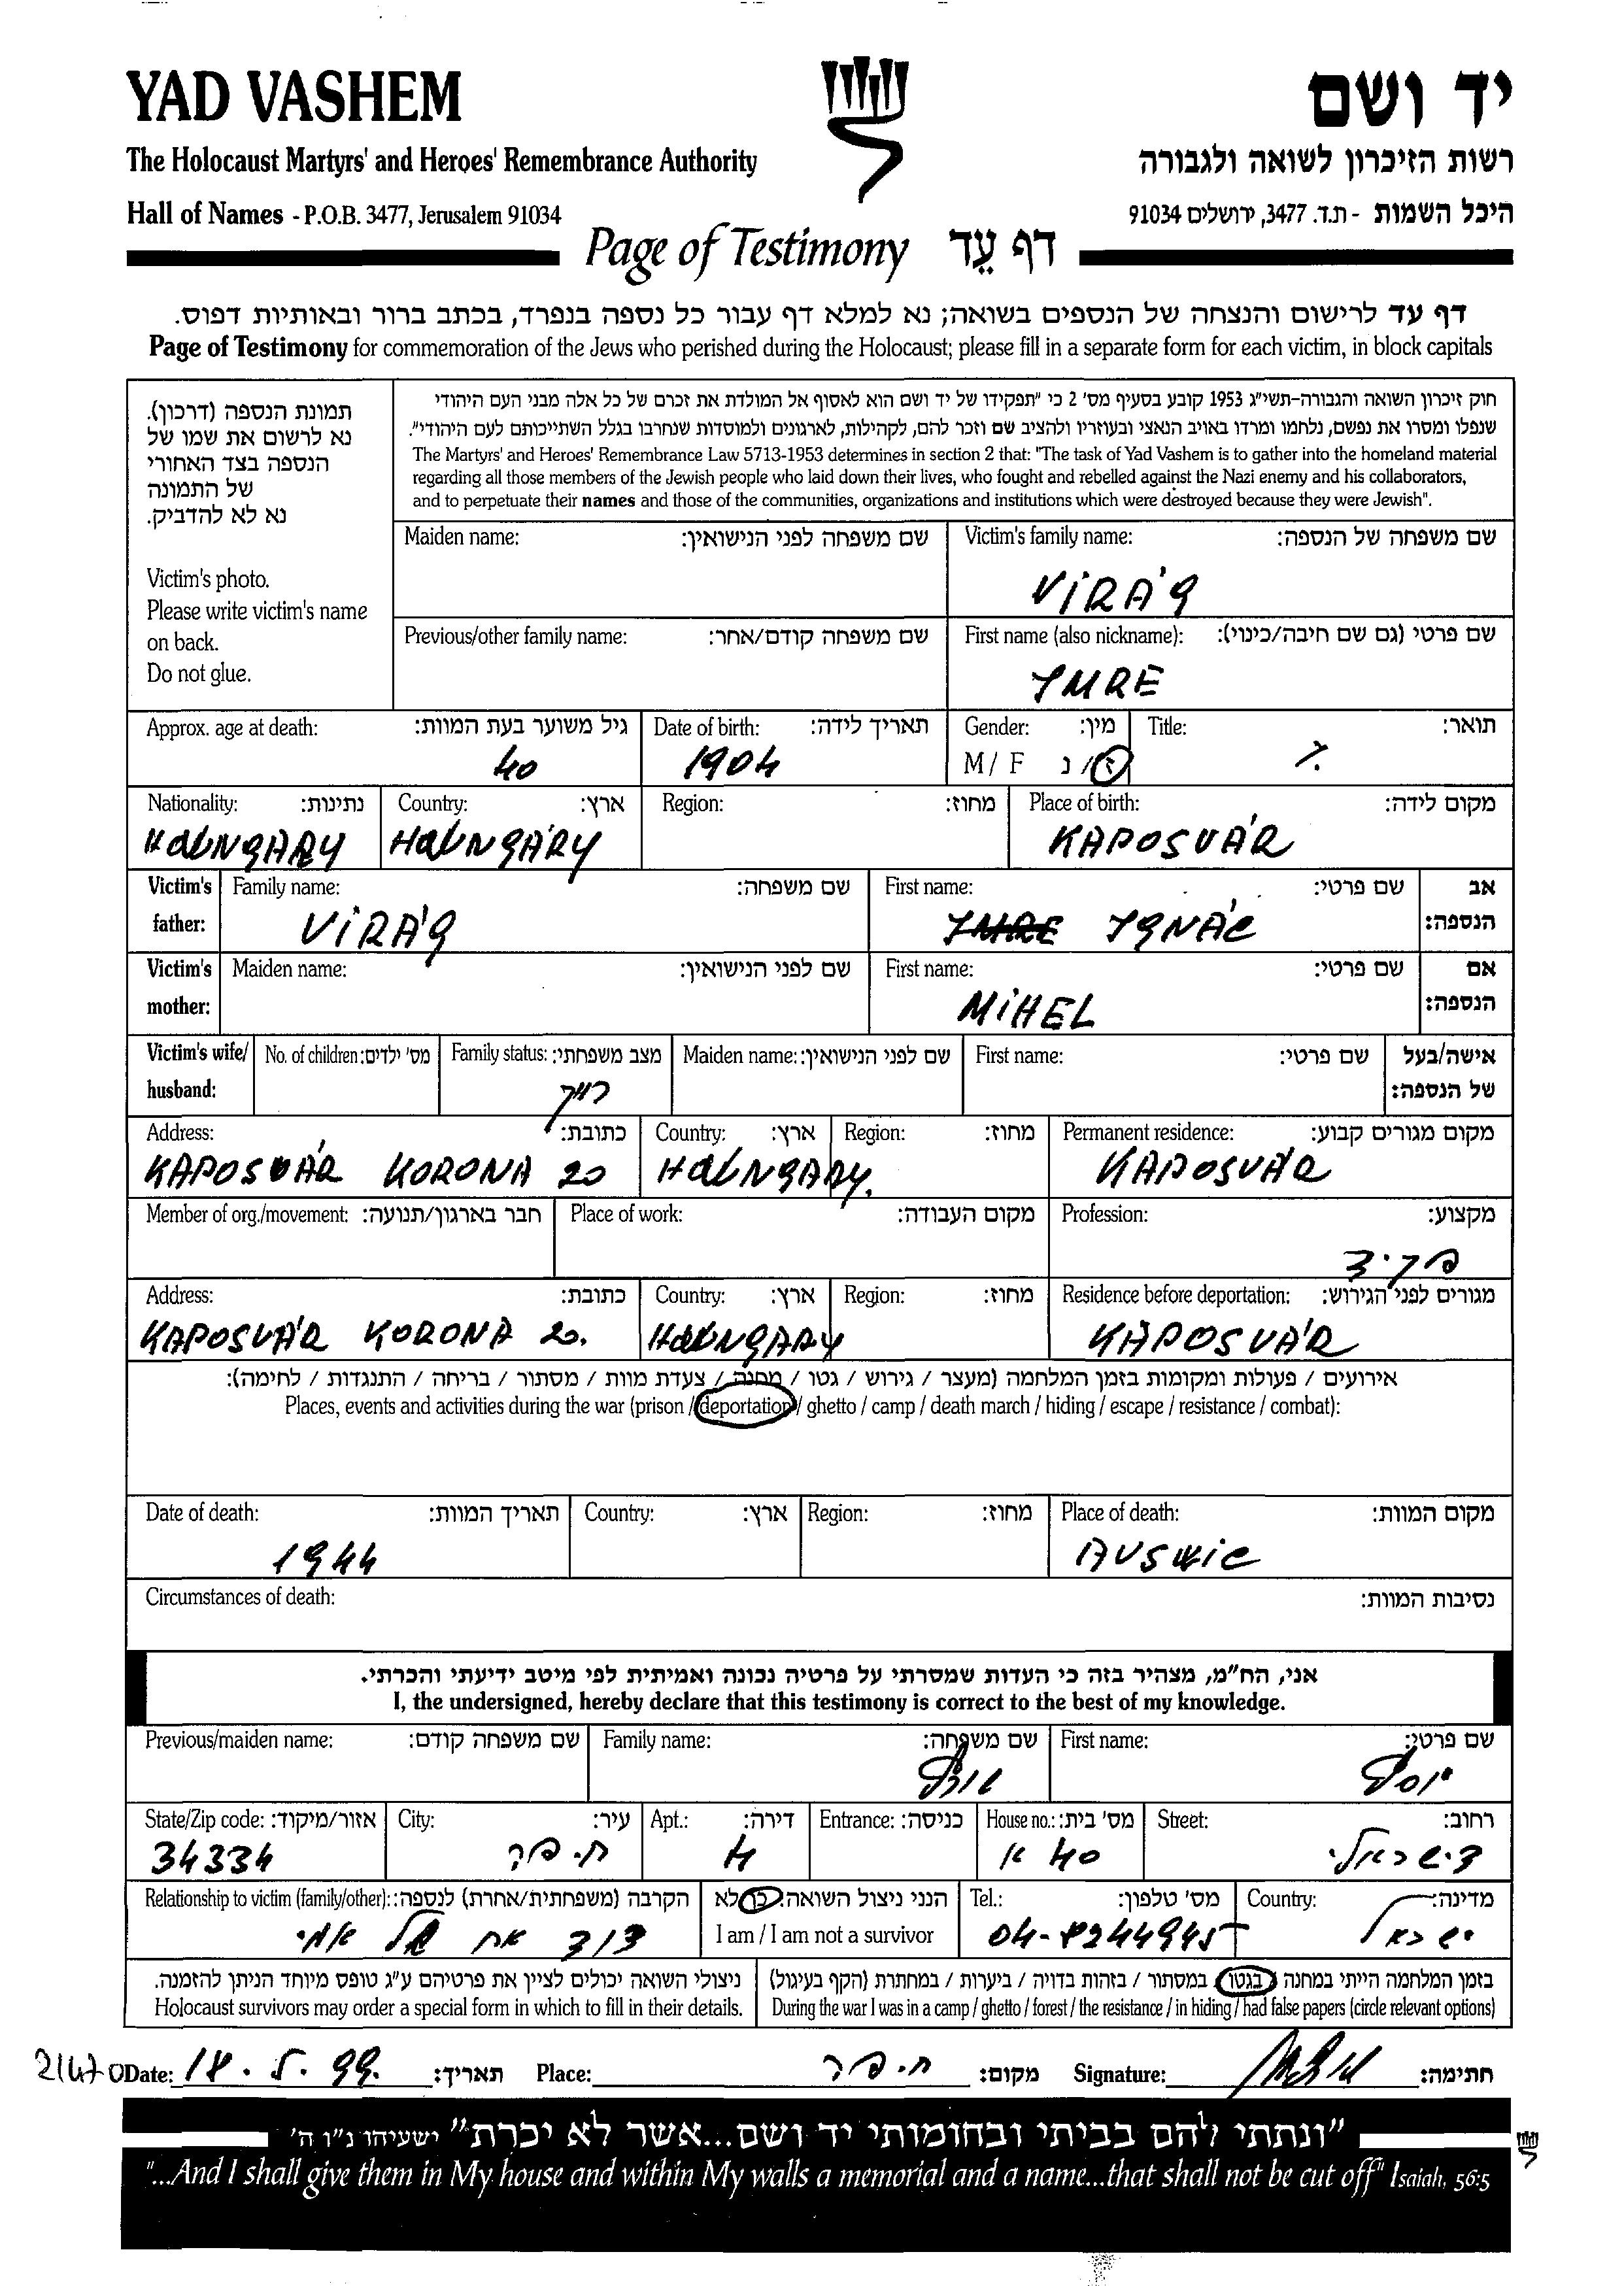 YAD VASHEM
יד ושם
The Holocaust Martyrs' and Heroes' Remembrance Authority
רשות הזיכרון לשואה ולגבורה
Hall of Names - P.O.B. 3477, Jerusalem 91034
היכל השמות - ת.ד. 3477, ירושלים 91034
Page of Testimony דף עֵד
דף עד לרישום והנצחה של הנספים בשואה; נא למלא דף עבור כל נספה בנפרד, בכתב ברור ובאותיות דפוס.
Page of Testimony for commemoration of the Jews who perished during the Holocaust; please fill in a separate form for each victim, in block capitals
תמונת הנספה (דרכון).
נא לרשום את שמו של
הנספה בצד האחורי
של התמונה
נא לא להדביק.
Victim's photo.
Please write victim's name
on back.
Do not glue.
חוק זיכרון השואה והגבורה-תשי"ג 1953 קובע בסעיף מס' 2 כי "תפקידו של יד ושם הוא לאסוף אל המולדת את זכרם של כל אלה מבני העם היהודי
שנפלו ומסרו את נפשם, נלחמו ומרדו באויב הנאצי ובעוזריו ולהציב שם וזכר להם, לקהילות, לארגונים ולמוסדות שנחרבו בגלל השתייכותם לעם היהודי".
The Martyrs' and Heroes' Remembrance Law 5713-1953 determines in section 2 that: "The task of Yad Vashem is to gather into the homeland material
regarding all those members of the Jewish people who laid down their lives, who fought and rebelled against the Nazi enemy and his collaborators,
and to perpetuate their names and those of the communities, organizations and institutions which were destroyed because they were Jewish".
Maiden name: שם משפחה לפני הנישואין:
Victim's family name: שם משפחה של הנספה:
VIRÁG
Previous/other family name: שם משפחה קודם/אחר:
First name (also nickname): שם פרטי (גם שם חיבה/כינוי):
IMRE
Approx. age at death: גיל משוער בעת המוות:
40
Date of birth: תאריך לידה:
1904
Gender: מין:
M / F ז/נ
Title: תואר:
Nationality: נתינות:
HOUNGARY
Country: ארץ:
HOUNGÁRY
Region: מחוז:
Place of birth: מקום לידה:
KAPOSVÁR
Victim's father:
Family name: שם משפחה:
VIRÁG
First name: שם פרטי:
IMRE IGNÁC
אב הנספה:
Victim's mother:
Maiden name: שם לפני הנישואין:
First name: שם פרטי:
MIHEL
אם הנספה:
Victim's wife/ husband:
No. of children: מס' ילדים:
Family status: מצב משפחתי:
רווק
Maiden name: שם לפני הנישואין:
First name: שם פרטי:
אישה/בעל של הנספה:
Address: כתובת:
KAPOSVÁR KORONA 20
Country: ארץ:
HOUNGARY.
Region: מחוז:
Permanent residence: מקום מגורים קבוע:
KAPOSVÁR
Member of org./movement: חבר בארגון/תנועה:
Place of work: מקום העבודה:
Profession: מקצוע:
פקיד
Address: כתובת:
KAPOSVÁR KORONA 20.
Country: ארץ:
HOUNGARY
Region: מחוז:
Residence before deportation: מגורים לפני הגירוש:
KAPOSVÁR
אירועים / פעולות ומקומות בזמן המלחמה (מעצר / גירוש / גטו / מחנה / צעדת מוות / מסתור / בריחה / התנגדות / לחימה):
Places, events and activities during the war (prison / deportation / ghetto / camp / death march / hiding / escape / resistance / combat):
Date of death: תאריך המוות:
1944
Country: ארץ:
Region: מחוז:
Place of death: מקום המוות:
AUSWIC
Circumstances of death: נסיבות המוות:
אני, הח"מ, מצהיר בזה כי העדות שמסרתי על פרטיה נכונה ואמיתית לפי מיטב ידיעתי והכרתי.
I, the undersigned, hereby declare that this testimony is correct to the best of my knowledge.
Previous/maiden name: שם משפחה קודם:
Family name: שם משפחה:
First name: שם פרטי:
יוסף
State/Zip code: אזור/מיקוד:
34334
City: עיר:
חיפה
Apt.: דירה:
4
Entrance: כניסה:
House no.: מס' בית:
40 א
Street: רחוב:
דישראלי
Relationship to victim (family/other): הקרבה (משפחתית/אחרת) לנספה:
דוד אח של אמי
הנני ניצול השואה: כן/לא
I am / I am not a survivor
Tel.: מס' טלפון:
04-8244945
Country: מדינה:
ישראל
ניצולי השואה יכולים לציין את פרטיהם ע"ג טופס מיוחד הניתן להזמנה.
Holocaust survivors may order a special form in which to fill in their details.
בזמן המלחמה הייתי במחנה / בגטו / במסתור / בזהות בדויה / ביערות / במחתרת (הקף בעיגול)
During the war I was in a camp / ghetto / forest / the resistance / in hiding / had false papers (circle relevant options)
Date: 18. 5. 99. תאריך:
Place: חיפה מקום:
Signature: חתימה:
"ונתתי להם בביתי ובחומותי יד ושם...אשר לא יכרת" ישעיהו נ"ו ה'
"...And I shall give them in My house and within My walls a memorial and a name...that shall not be cut off" Isaiah, 56:5